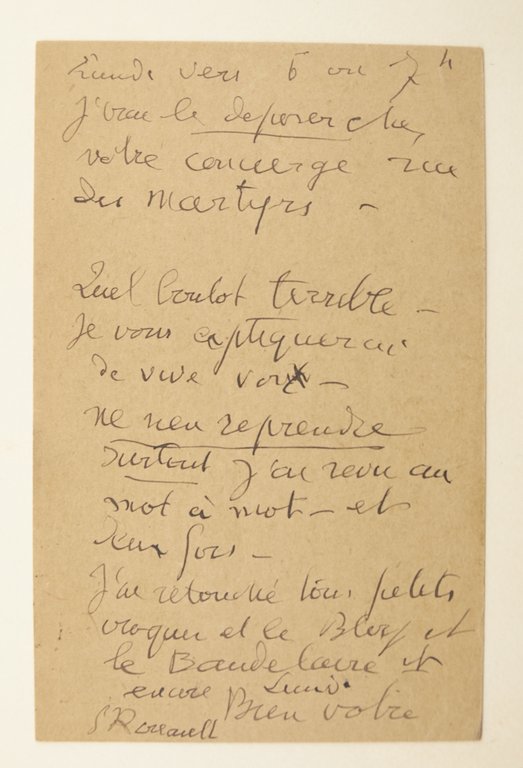 Lundi vers 6 ou 7 h
J'irai le deposer chez
votre concierge rue
des Martyrs –
Quel boulot terrible –
Je vous expliquerai
de vive voix –
ne rien reprendre
surtout J'ai revu au
mot à mot – et
deux fois –
J'ai retouché tous petits
croquis et le Bloy et
le Baudelaire et
encore Lundi.
Bien votre
GRouault